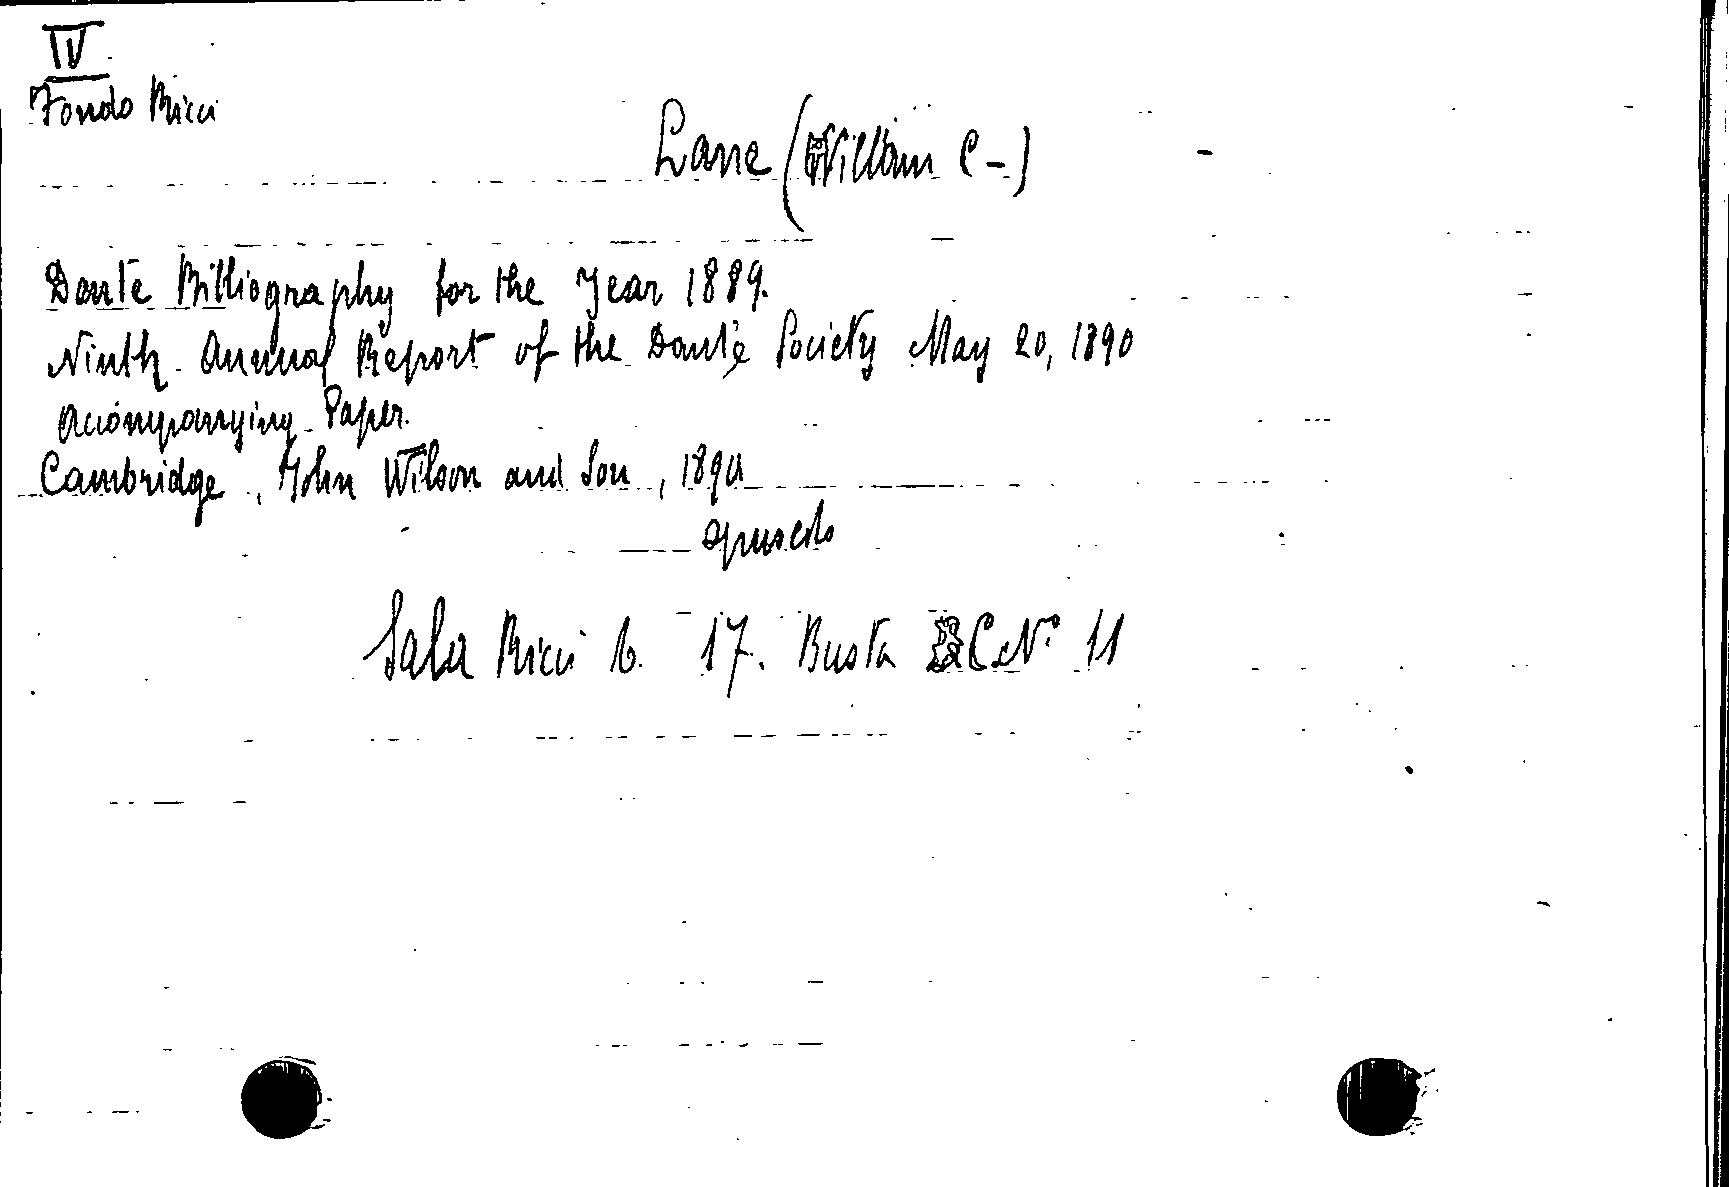 IV
Fondo Ricci
Lane (William C-)
Dante Bibliography for the Year 1889.
Ninth Annual Report of the Dante Society May 20, 1890
Accompanying Paper.
Cambridge, John Wilson and Son, 1890
opuscolo
Sala Ricci 6. 17. Busta C N° 11